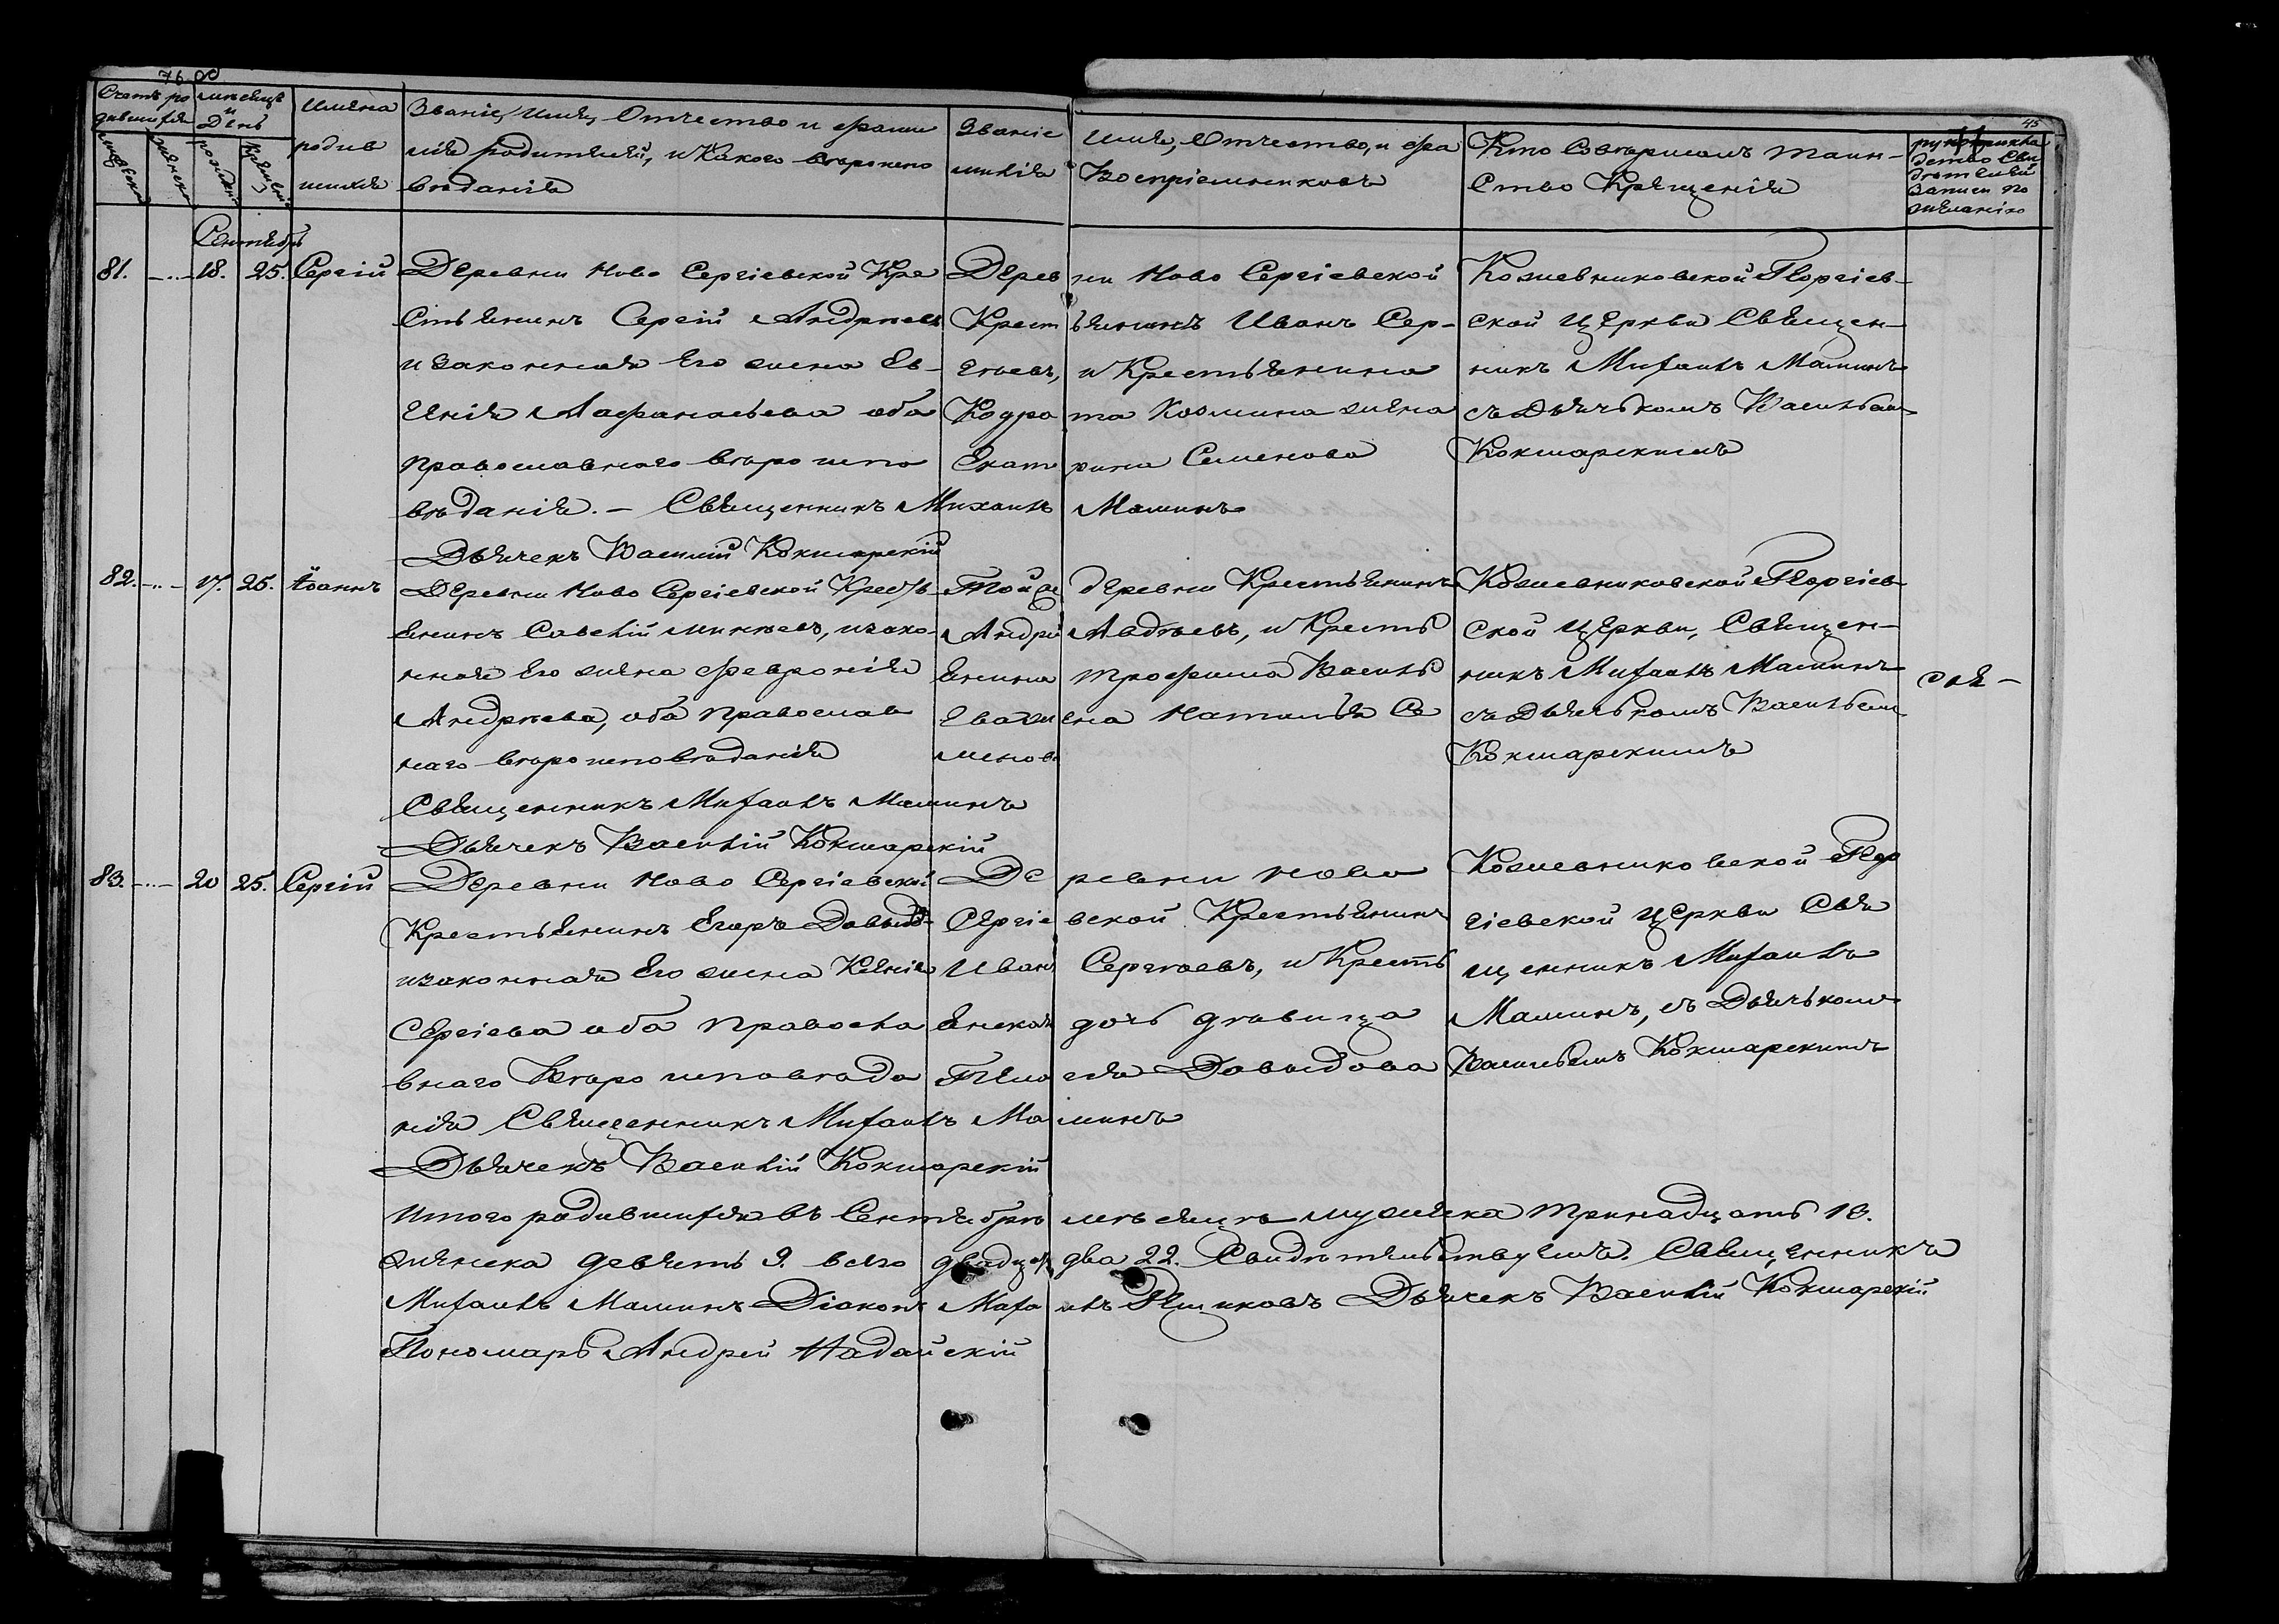 45
Счетъ родившихся
мѣсяцъ и день
мужеска женска
рожденія крещенія
имена родившихся
Званіе, имя, Отчество и фамилія родителей, и Какого вѣроисповѣданія
Званіе имя, Отчество, и фамилія Воспріемниковъ
Кто Совершалъ таинство Крещенія
рукоприкладство Свидѣтелей Записи по желанію
Сентябрь
81. 18. 25. Сергій
Деревни Ново Сергіевской Кре
стьянинъ Сергій Андреевъ
и законная Его жена Ев
генія Афанасьева оба
православнаго вѣроиспо
вѣданія. – Священникъ Михаилъ Машинъ
Дьячекъ Василій Кокшарскій
Деревни Ново Сергіевской
Крестьянинъ Иванъ Сер-
гѣевъ, и Крестьянина
Кодрата Козмина жена
Екатерина Семенова
Кожевниковской Георгіев-
ской церкви Священ-
никъ Михаилъ Машинъ
съ Дьячькомъ Васильем
Кокшарскимъ
82. 17. 25. Іоаннъ
Деревни Ново Сергіевской Кресть
янинъ Савелій Минѣевъ, и зако-
нная Его жена Феврониія
Андрѣева, оба Православ
наго вѣроисповѣданія
Священникъ Михаилъ Машинъ
Дьячекъ Василій Кокшарскій
Той же деревни Крестьянинъ
Андрей Авдѣевъ, и Кресть
янина Трофима Василь
ева жена Наталья Се
менова
Кожевниковской Георгіев-
ской церкви, Священ-
никъ Михаилъ Машинъ
съ Дьячькомъ Васильем
Кокшарскимъ
83. 20 25. Сергій
Деревни Ново Сергіевской
Крестьянинъ Егоръ Давыд
и законная Его жена Ксенія
Сергіева оба Правосла
внаго Вѣро исповѣда
нія Священникъ Михаилъ Машинъ
Дьячекъ Василій Кокшарскій
Деревни Ново
Сергіевской Крестьянинъ
Иванъ Сергѣевъ, и Кресть
янская дочь дѣвица
Давыдова
Кожевниковской Геор
гіевской церкви Свя
щенникъ Михаилъ
Машинъ, съ Дьячькомъ
Васильемъ Кокшарскимъ
Итого родившихся въ Сентябрѣ мѣсяцѣ мужеска тринадцать 13.
женска девять 9. всего двадцать два 22. Свидѣтельствуемъ. Священникъ
Михаилъ Машинъ Діаконъ Дьячекъ Василій Кокшарскій
Пономарь Андрей Надайскій